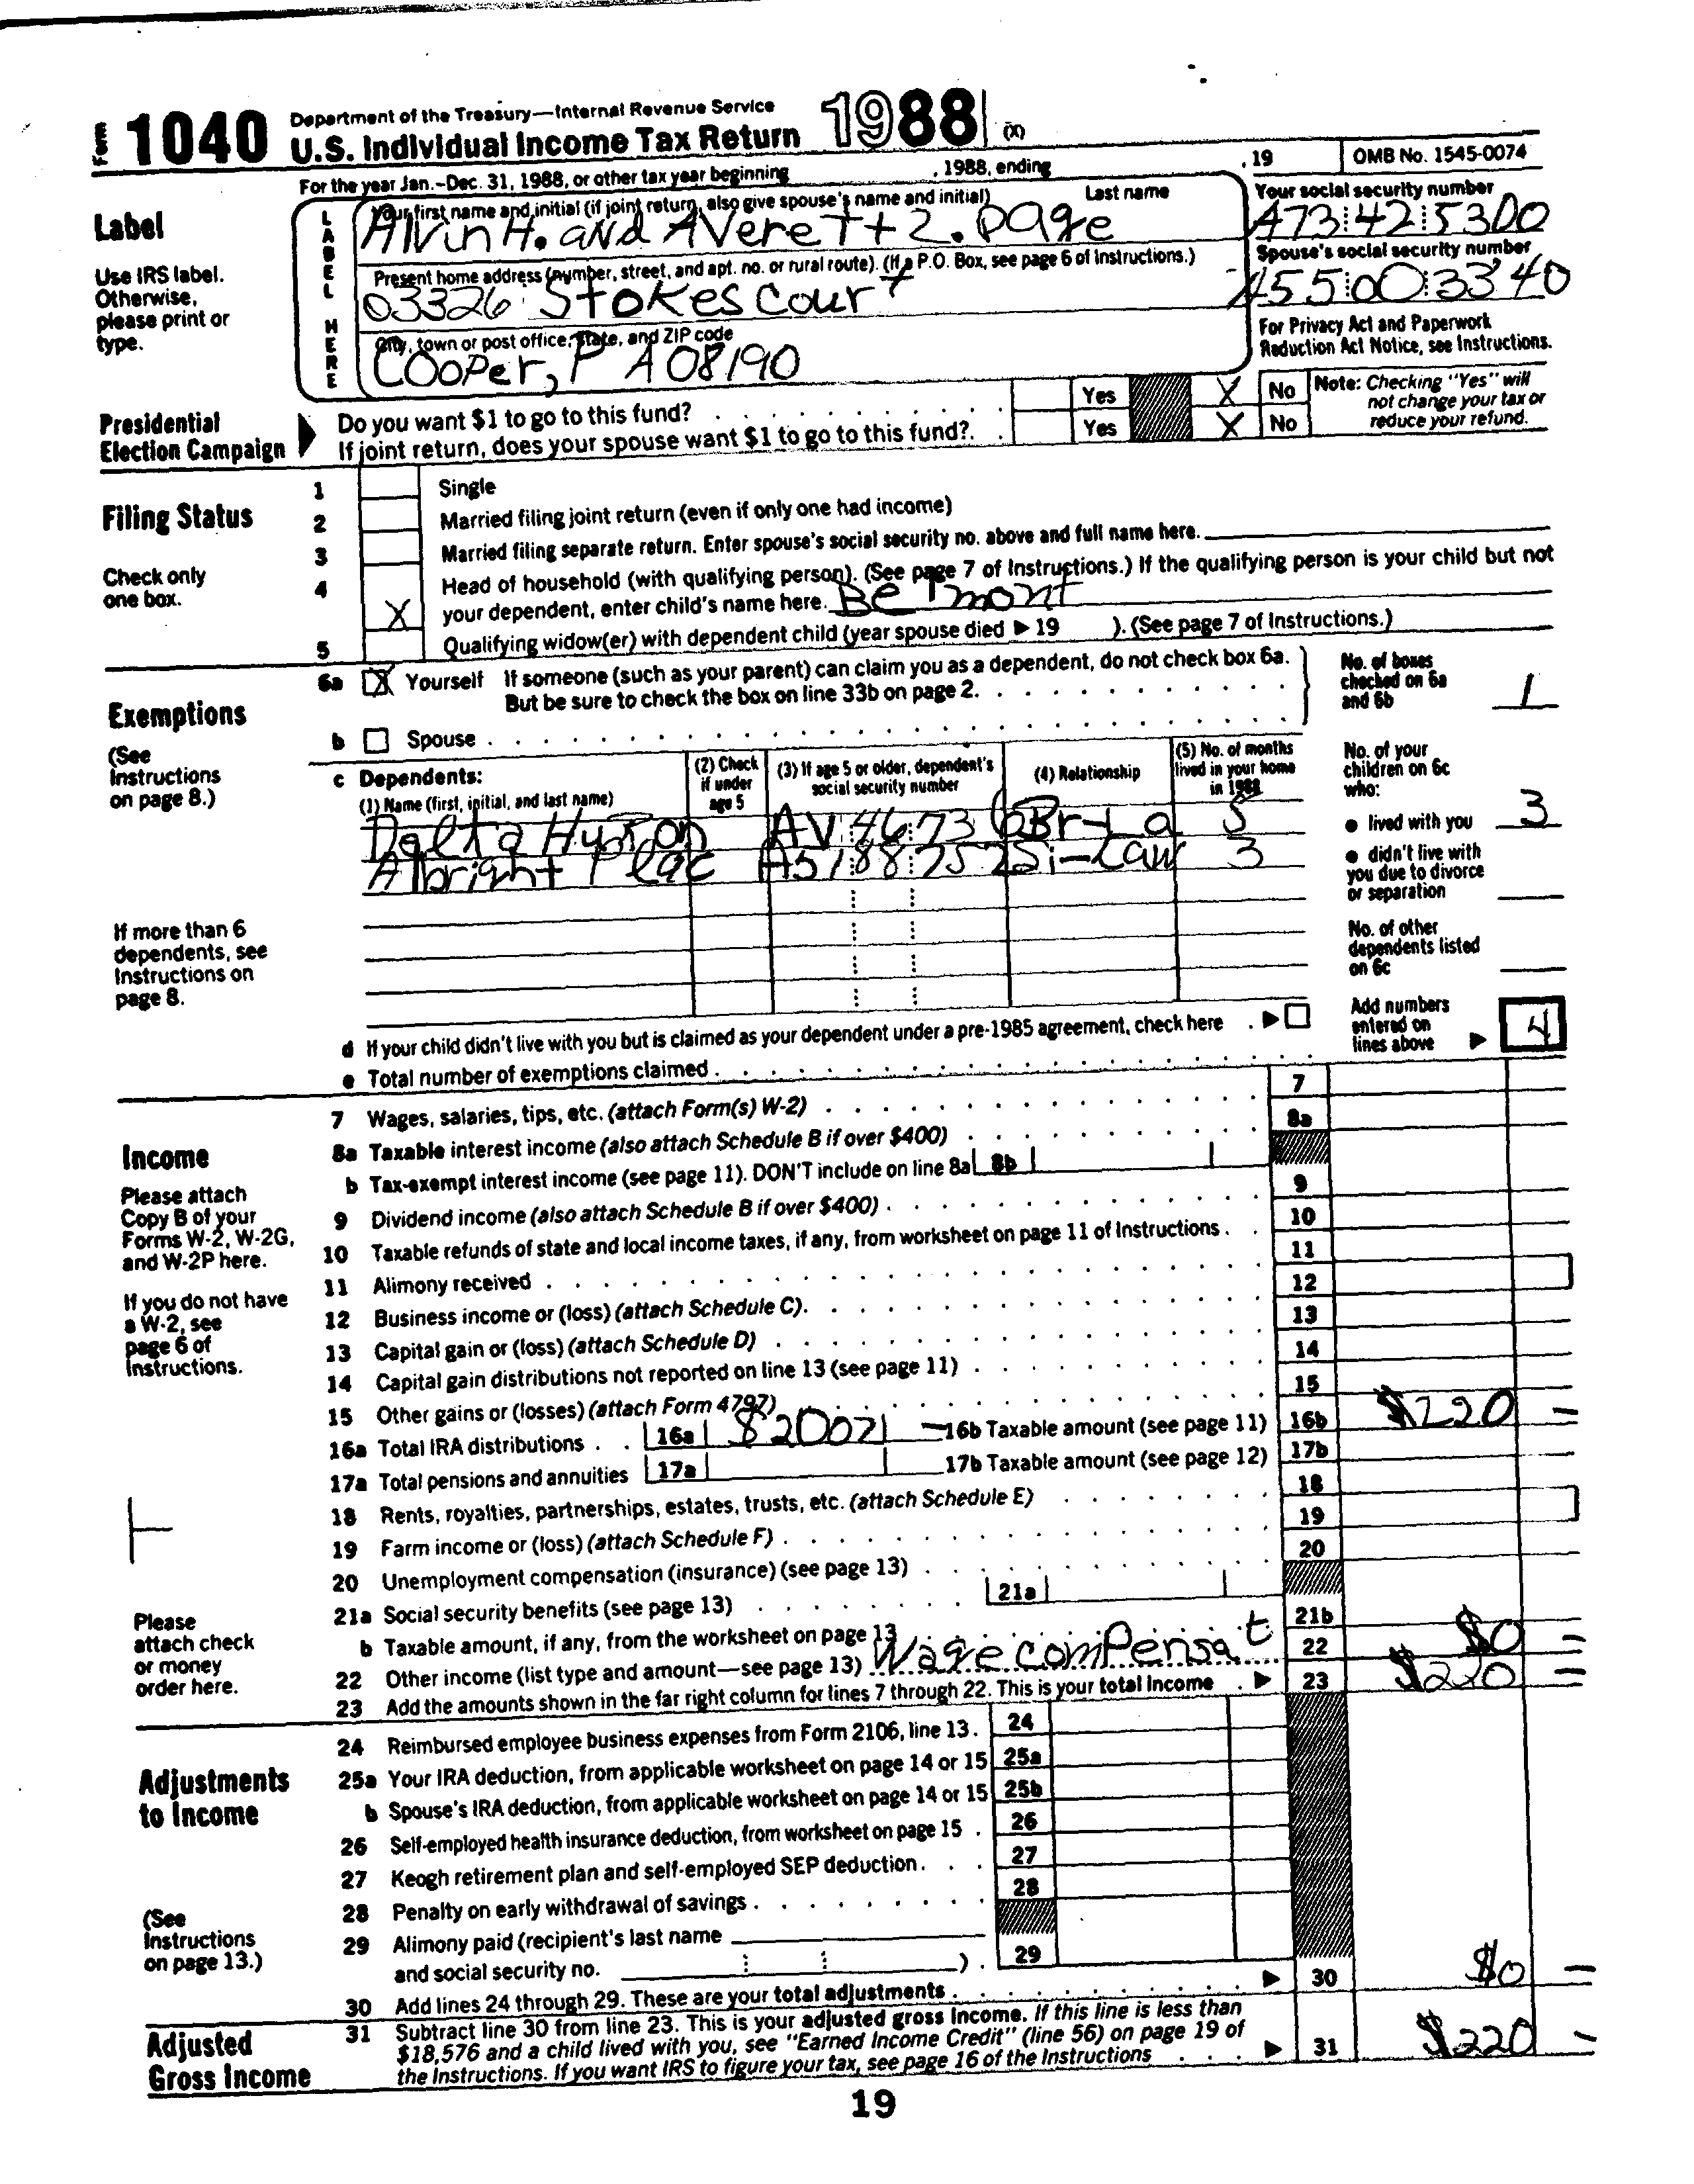 Form 1040 Department of the Treasury—Internal Revenue Service
U.S. Individual Income Tax Return 1988 (X)
For the year Jan.-Dec. 31, 1988, or other tax year beginning , 1988, ending , 19 OMB No. 1545-0074
Label
Use IRS label. Otherwise, please print or type.
LABEL HERE
Your first name and initial (if joint return, also give spouse's name and initial) Last name
Alvin H. and Averett Z. Page
Your social security number
A73 42 5300
Present home address (number, street, and apt. no. or rural route). (If a P.O. Box, see page 6 of Instructions.)
03326 Stokes Court
Spouse's social security number
A55 00 3340
City, town or post office, state, and ZIP code
Cooper, PA 08190
For Privacy Act and Paperwork Reduction Act Notice, see Instructions.
Presidential Election Campaign
Do you want $1 to go to this fund? Yes X No
If joint return, does your spouse want $1 to go to this fund? Yes X No
Note: Checking "Yes" will not change your tax or reduce your refund.
Filing Status
Check only one box.
1 Single
2 Married filing joint return (even if only one had income)
3 Married filing separate return. Enter spouse's social security no. above and full name here.
4 X Head of household (with qualifying person). (See page 7 of Instructions.) If the qualifying person is your child but not
your dependent, enter child's name here. Belmont
5 Qualifying widow(er) with dependent child (year spouse died ▶ 19 ). (See page 7 of Instructions.)
Exemptions
(See Instructions on page 8.)
6a X Yourself If someone (such as your parent) can claim you as a dependent, do not check box 6a.
But be sure to check the box on line 33b on page 2.
No. of boxes checked on 6a and 6b 1
b Spouse
c Dependents:
(1) Name (first, initial, and last name)
(2) Check if under age 5
(3) If age 5 or older, dependent's social security number
(4) Relationship
(5) No. of months lived in your home in 1988
Delta Huron AV 46 73 Br-La 5
Albright Plac A51 88 7525 i-Law 3
No. of your children on 6c who:
● lived with you 3
● didn't live with you due to divorce or separation
No. of other dependents listed on 6c
If more than 6 dependents, see Instructions on page 8.
d If your child didn't live with you but is claimed as your dependent under a pre-1985 agreement, check here ▶
e Total number of exemptions claimed
Add numbers entered on lines above ▶ 4
Income
Please attach Copy B of your Forms W-2, W-2G, and W-2P here.
If you do not have a W-2, see page 6 of Instructions.
Please attach check or money order here.
7 Wages, salaries, tips, etc. (attach Form(s) W-2) 7
8a Taxable interest income (also attach Schedule B if over $400) 8a
b Tax-exempt interest income (see page 11). DON'T include on line 8a 8b
9 Dividend income (also attach Schedule B if over $400) 9
10 Taxable refunds of state and local income taxes, if any, from worksheet on page 11 of Instructions 10
11 Alimony received 11
12 Business income or (loss) (attach Schedule C) 12
13 Capital gain or (loss) (attach Schedule D) 13
14 Capital gain distributions not reported on line 13 (see page 11) 14
15 Other gains or (losses) (attach Form 4797) 15
16a Total IRA distributions 16a $2002 — 16b Taxable amount (see page 11) 16b $220 —
17a Total pensions and annuities 17a 17b Taxable amount (see page 12) 17b
18 Rents, royalties, partnerships, estates, trusts, etc. (attach Schedule E) 18
19 Farm income or (loss) (attach Schedule F) 19
20 Unemployment compensation (insurance) (see page 13) 20
21a Social security benefits (see page 13) 21a
b Taxable amount, if any, from the worksheet on page 13 21b
22 Other income (list type and amount—see page 13) Wage compensat 22 $0 —
23 Add the amounts shown in the far right column for lines 7 through 22. This is your total income ▶ 23 $220 —
Adjustments to Income
(See Instructions on page 13.)
24 Reimbursed employee business expenses from Form 2106, line 13 24
25a Your IRA deduction, from applicable worksheet on page 14 or 15 25a
b Spouse's IRA deduction, from applicable worksheet on page 14 or 15 25b
26 Self-employed health insurance deduction, from worksheet on page 15 26
27 Keogh retirement plan and self-employed SEP deduction 27
28 Penalty on early withdrawal of savings 28
29 Alimony paid (recipient's last name
and social security no. ) 29
30 Add lines 24 through 29. These are your total adjustments ▶ 30 $0 —
Adjusted Gross Income
31 Subtract line 30 from line 23. This is your adjusted gross income. If this line is less than
$18,576 and a child lived with you, see "Earned Income Credit" (line 56) on page 19 of
the Instructions. If you want IRS to figure your tax, see page 16 of the Instructions ▶ 31 $220 —
19